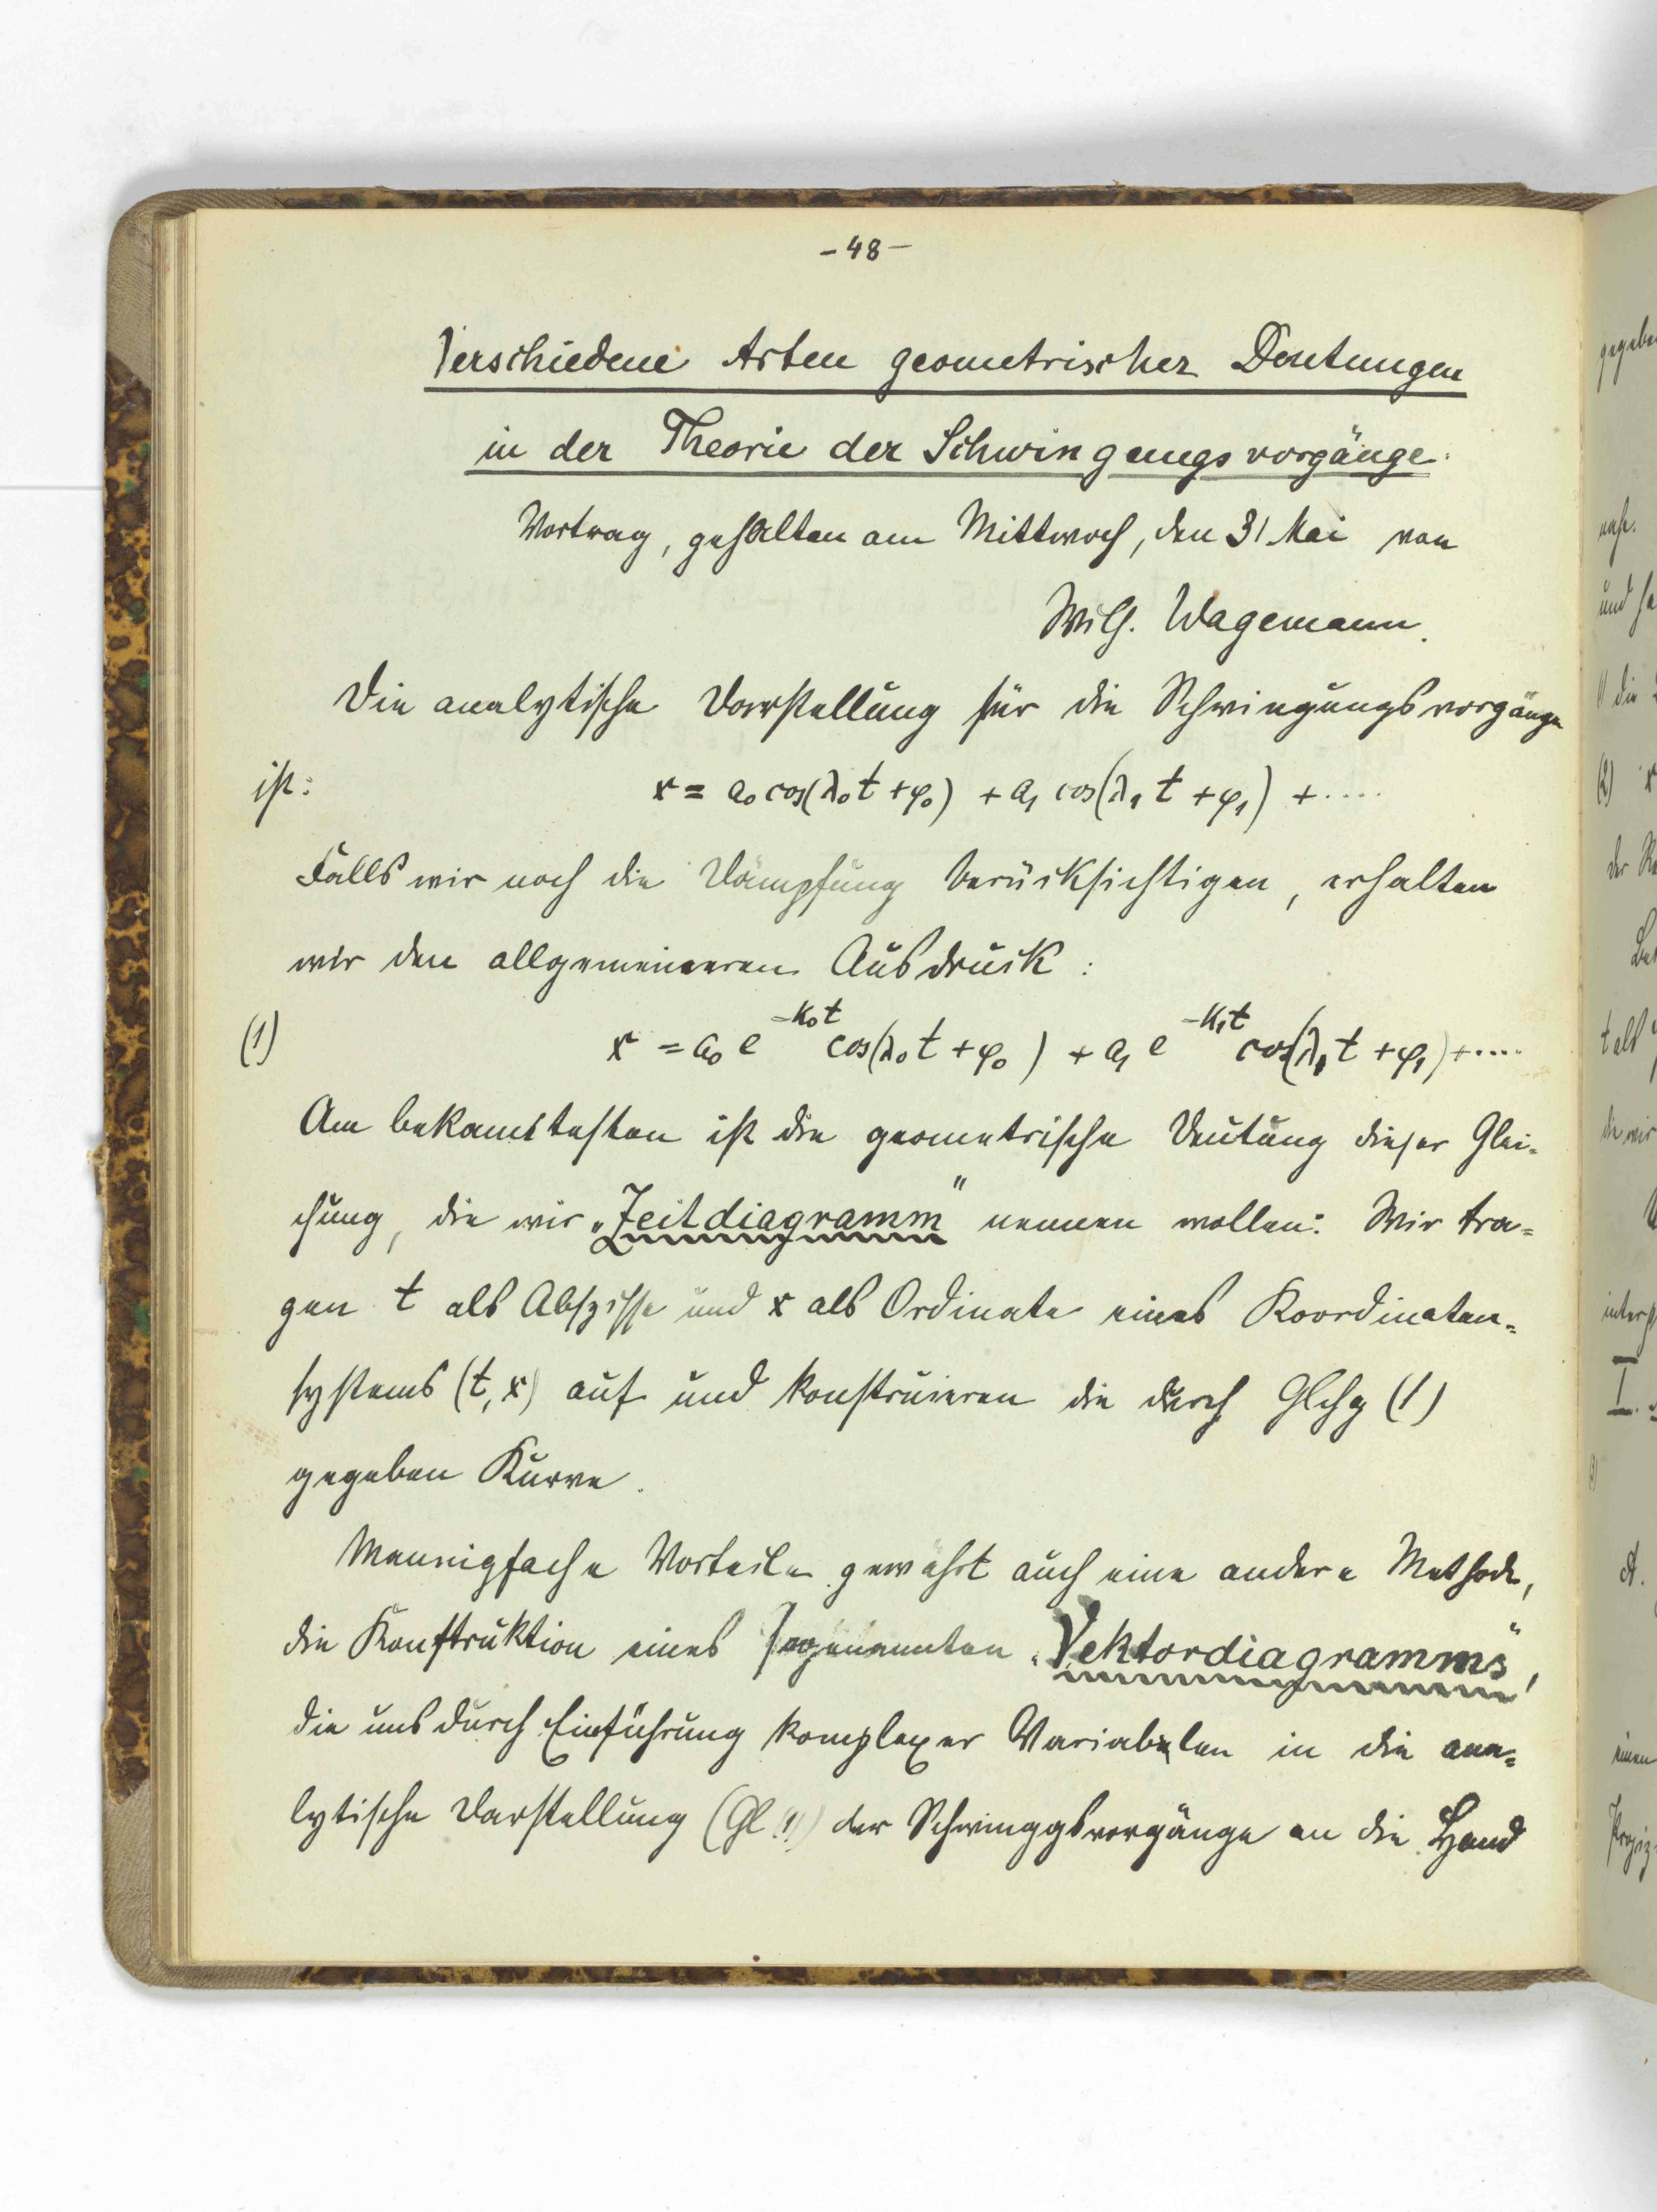 - 48 -
Verschiedene Arten geometrischer Deutungen
in der Theorie der Schwingungsvorgänge.
Vortrag, gehalten am Mittwoch, den 31 Mai von
Wilh. Wagemann.
Die analytische Darstellung für die Schwingungsvorgänge
ist: x = a₀ cos(λ₀t + φ₀) + a₁ cos(λ₁t + φ₁) + ....
Falls wir noch die Dämpfung berücksichtigen, erhalten
wir den allgemeineren Ausdruck:
(1) x = a₀ e^{-K₀t} cos(λ₀t + φ₀) + a₁ e^{-K₁t} cos(λ₁t + φ₁) + ....
Am bekanntesten ist die geometrische Deutung dieser Glei-
chung, die wir „Zeitdiagramm" nennen wollen: Wir tra-
gen t als Abszisse und x als Ordinate eines Koordinaten-
systems (t, x) auf und konstruieren die durch Glchg (1)
gegeben Kurve.
Mannigfache Vorteile gewährt auch eine andere Methode,
die Konstruktion eines sogenannten „Vektordiagramms",
die uns durch Einführung komplexer Variabelen in die ana-
lytische Darstellung (Gl (1)) der Schwinggsvorgänge an die Hand